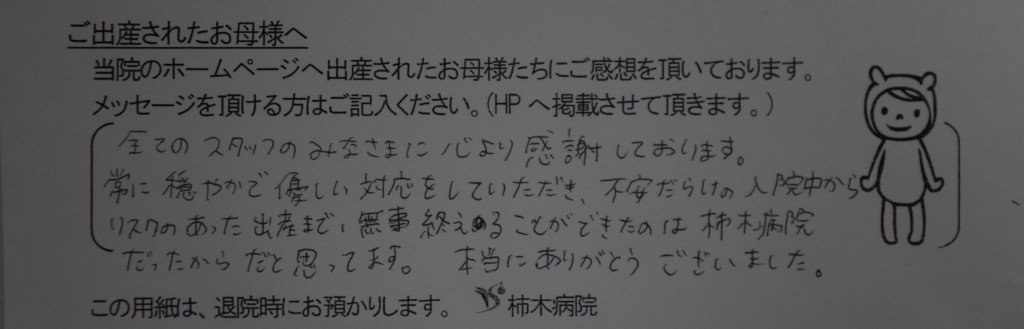 ご出産されたお母様へ
当院のホームページへ出産されたお母様たちにご感想を頂いております。
メッセージを頂ける方はご記入ください。(HPへ掲載させて頂きます。)
全てのスタッフのみなさまに心より感謝しております。
常に穏やかで優しい対応をしていただき、不安だらけの入院中から
リスクのあった出産まで、無事終えることができたのは柿木病院
だったからだと思ってます。 本当にありがとうございました。
この用紙は、退院時にお預かりします。 柿木病院